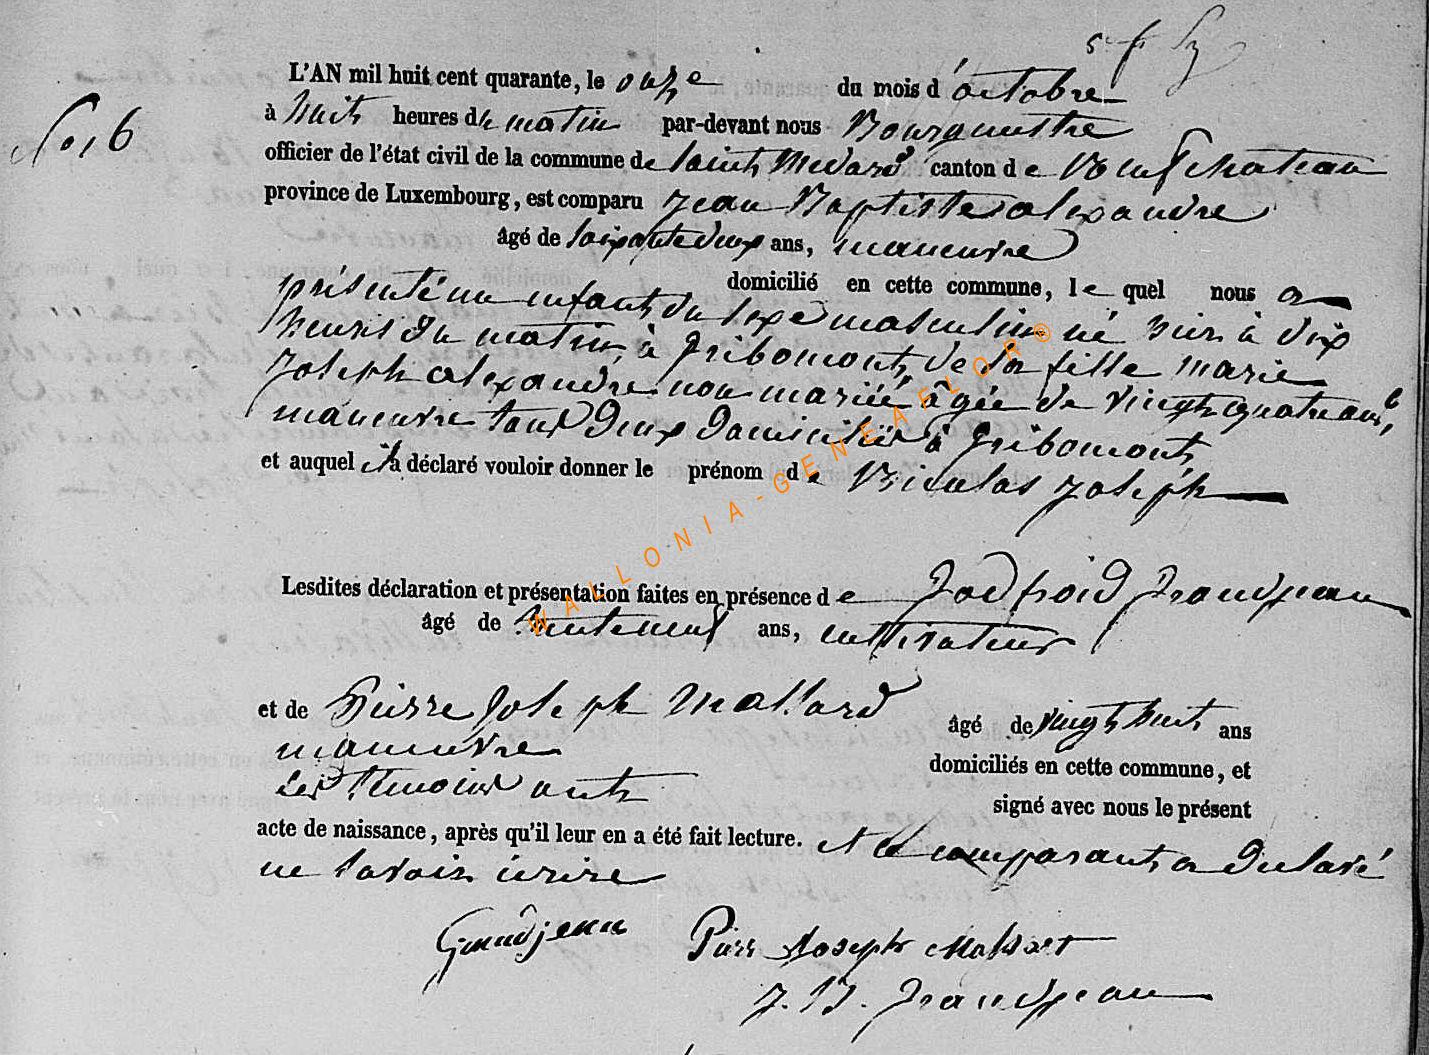 No 16
L'AN mil huit cent quarante, le onze du mois d'octobre
à huit heures du matin par-devant nous Bourgmestre
officier de l'état civil de la commune de Saint Medard canton de Neufchateau
province de Luxembourg, est comparu Jean Baptiste alexandre
âgé de soixante deux ans, maneuvre
domicilié en cette commune, le quel nous a
présenté un enfant du sexe masculin né hier à dix
heures du matin, à Gribomont, de sa fille marie
Joseph alexandre non mariée âgée de vingt quatre ans,
maneuvre tous deux domiciliés à Gribomont
et auquel il a déclaré vouloir donner le prénom de Nicolas Joseph
Lesdites déclaration et présentation faites en présence de Godfroid Grandjean
âgé de trente neuf ans, cultivateur
et de Pierre Joseph Massard âgé de vingt huit ans
maneuvre
domiciliés en cette commune, et
Les temoins ont
signé avec nous le présent
acte de naissance, après qu'il leur en a été fait lecture. et le comparant a déclaré
ne savoir écrire
Grandjean Pierr Joseph Massart
J. B. Grandjean
WALLONIA-GENEAELOR©